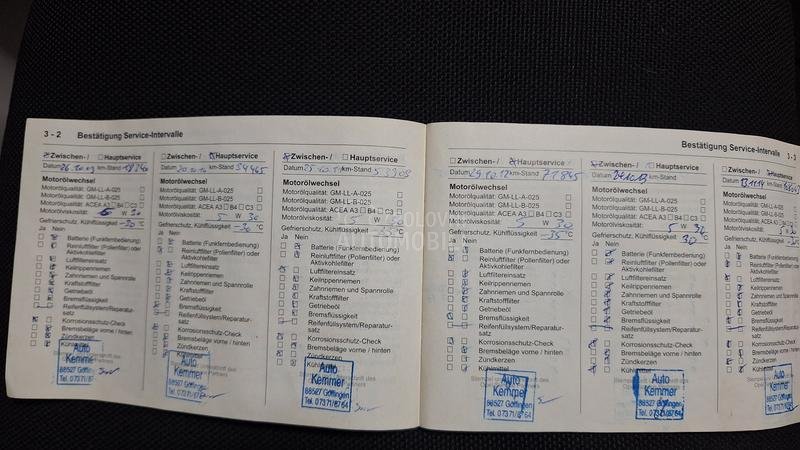 3 - 2 Bestätigung Service-Intervalle
Zwischen- / Hauptservice
Datum 26.10.09 km-Stand
Motorölwechsel
Motorölqualität: GM-LL-A-025
Motorölqualität: GM-LL-B-025
Motorölqualität: ACEA A3 B4 C3
Motorölviskosität: 5 W 30
Gefrierschutz, Kühlflüssigkeit -30 °C
Ja Nein
Batterie (Funkfernbedienung)
Reinluftfilter (Pollenfilter) oder
Aktivkohlefilter
Luftfiltereinsatz
Keilrippenriemen
Zahnriemen und Spannrolle
Kraftstofffilter
Getriebeöl
Bremsflüssigkeit
Reifenfüllsystem/Reparatur-
satz
Korrosionsschutz-Check
Bremsbeläge vorne / hinten
Zündkerzen
Auto
Kemmer
88527 Göffingen
Tel. 07371/87
Zwischen- / Hauptservice
Datum km-Stand 34465
Motorölwechsel
Motorölqualität: GM-LL-A-025
Motorölqualität: GM-LL-B-025
Motorölqualität: ACEA A3 B4 C3
Motorölviskosität: 5 W 30
Gefrierschutz, Kühlflüssigkeit -30 °C
Ja Nein
Batterie (Funkfernbedienung)
Reinluftfilter (Pollenfilter) oder
Aktivkohlefilter
Luftfiltereinsatz
Keilrippenriemen
Zahnriemen und Spannrolle
Kraftstofffilter
Getriebeöl
Bremsflüssigkeit
Reifenfüllsystem/Reparatur-
satz
Korrosionsschutz-Check
Bremsbeläge vorne / hinten
Zündkerzen
Kühlmittel
Auto
Kemmer
88527 Göffingen
Tel. 07371/87
Zwischen- / Hauptservice
Datum km-Stand
Motorölwechsel
Motorölqualität: GM-LL-A-025
Motorölqualität: GM-LL-B-025
Motorölqualität: ACEA A3 B4 C3
Motorölviskosität: 5 W 30
Gefrierschutz, Kühlflüssigkeit °C
Ja Nein
Batterie (Funkfernbedienung)
Reinluftfilter (Pollenfilter) oder
Aktivkohlefilter
Luftfiltereinsatz
Keilrippenriemen
Zahnriemen und Spannrolle
Kraftstofffilter
Getriebeöl
Bremsflüssigkeit
Reifenfüllsystem/Reparatur-
satz
Korrosionsschutz-Check
Bremsbeläge vorne / hinten
Zündkerzen
Kühlmittel
Auto
Kemmer
88527 Göffingen
Tel. 07371/87 64
Bestätigung Service-Intervalle 3 - 3
Zwischen- / Hauptservice
Datum 29.10.12 km-Stand 71845
Motorölwechsel
Motorölqualität: GM-LL-A-025
Motorölqualität: GM-LL-B-025
Motorölqualität: ACEA A3 B4 C3
Motorölviskosität: 5 W 30
Gefrierschutz, Kühlflüssigkeit -35 °C
Ja Nein
Batterie (Funkfernbedienung)
Reinluftfilter (Pollenfilter) oder
Aktivkohlefilter
Luftfiltereinsatz
Keilrippenriemen
Zahnriemen und Spannrolle
Kraftstofffilter
Getriebeöl
Bremsflüssigkeit
Reifenfüllsystem/Reparatur-
satz
Korrosionsschutz-Check
Bremsbeläge vorne / hinten
Zündkerzen
Kühlmittel
Auto
Kemmer
88527 Göffingen
Tel. 07371/87 64
Zwischen- / Hauptservice
Datum km-Stand
Motorölwechsel
Motorölqualität: GM-LL-A-025
Motorölqualität: GM-LL-B-025
Motorölqualität: ACEA A3 B4 C3
Motorölviskosität: 5 W 30
Gefrierschutz, Kühlflüssigkeit 30 °C
Ja Nein
Batterie (Funkfernbedienung)
Reinluftfilter (Pollenfilter) oder
Aktivkohlefilter
Luftfiltereinsatz
Keilrippenriemen
Zahnriemen und Spannrolle
Kraftstofffilter
Getriebeöl
Bremsflüssigkeit
Reifenfüllsystem/Reparatur-
satz
Korrosionsschutz-Check
Bremsbeläge vorne / hinten
Zündkerzen
Kühlmittel
Auto
Kemmer
88527 Göffingen
Tel. 07371/87 64
Zwischen- /
Datum 13.11.14 km-Stand
Motorölwechsel
Motorölqualität: GM-LL-A-025
Motorölqualität: GM-LL-B-025
Motorölqualität: ACEA A3
Motorölviskosität:
Gefrierschutz, Kühlflüssigkeit
Ja Nein
Batterie (Funkfernbedienung)
Reinluftfilter (Pollenfilter)
Aktivkohlefilter
Luftfiltereinsatz
Keilrippenriemen
Zahnriemen und Spannrolle
Kraftstofffilter
Getriebeöl
Bremsflüssigkeit
satz
Korrosionsschutz-Check
Bremsbeläge vorne / hinten
Zündkerzen
Kühlmittel
Auto
Kemmer
88527 Göffingen